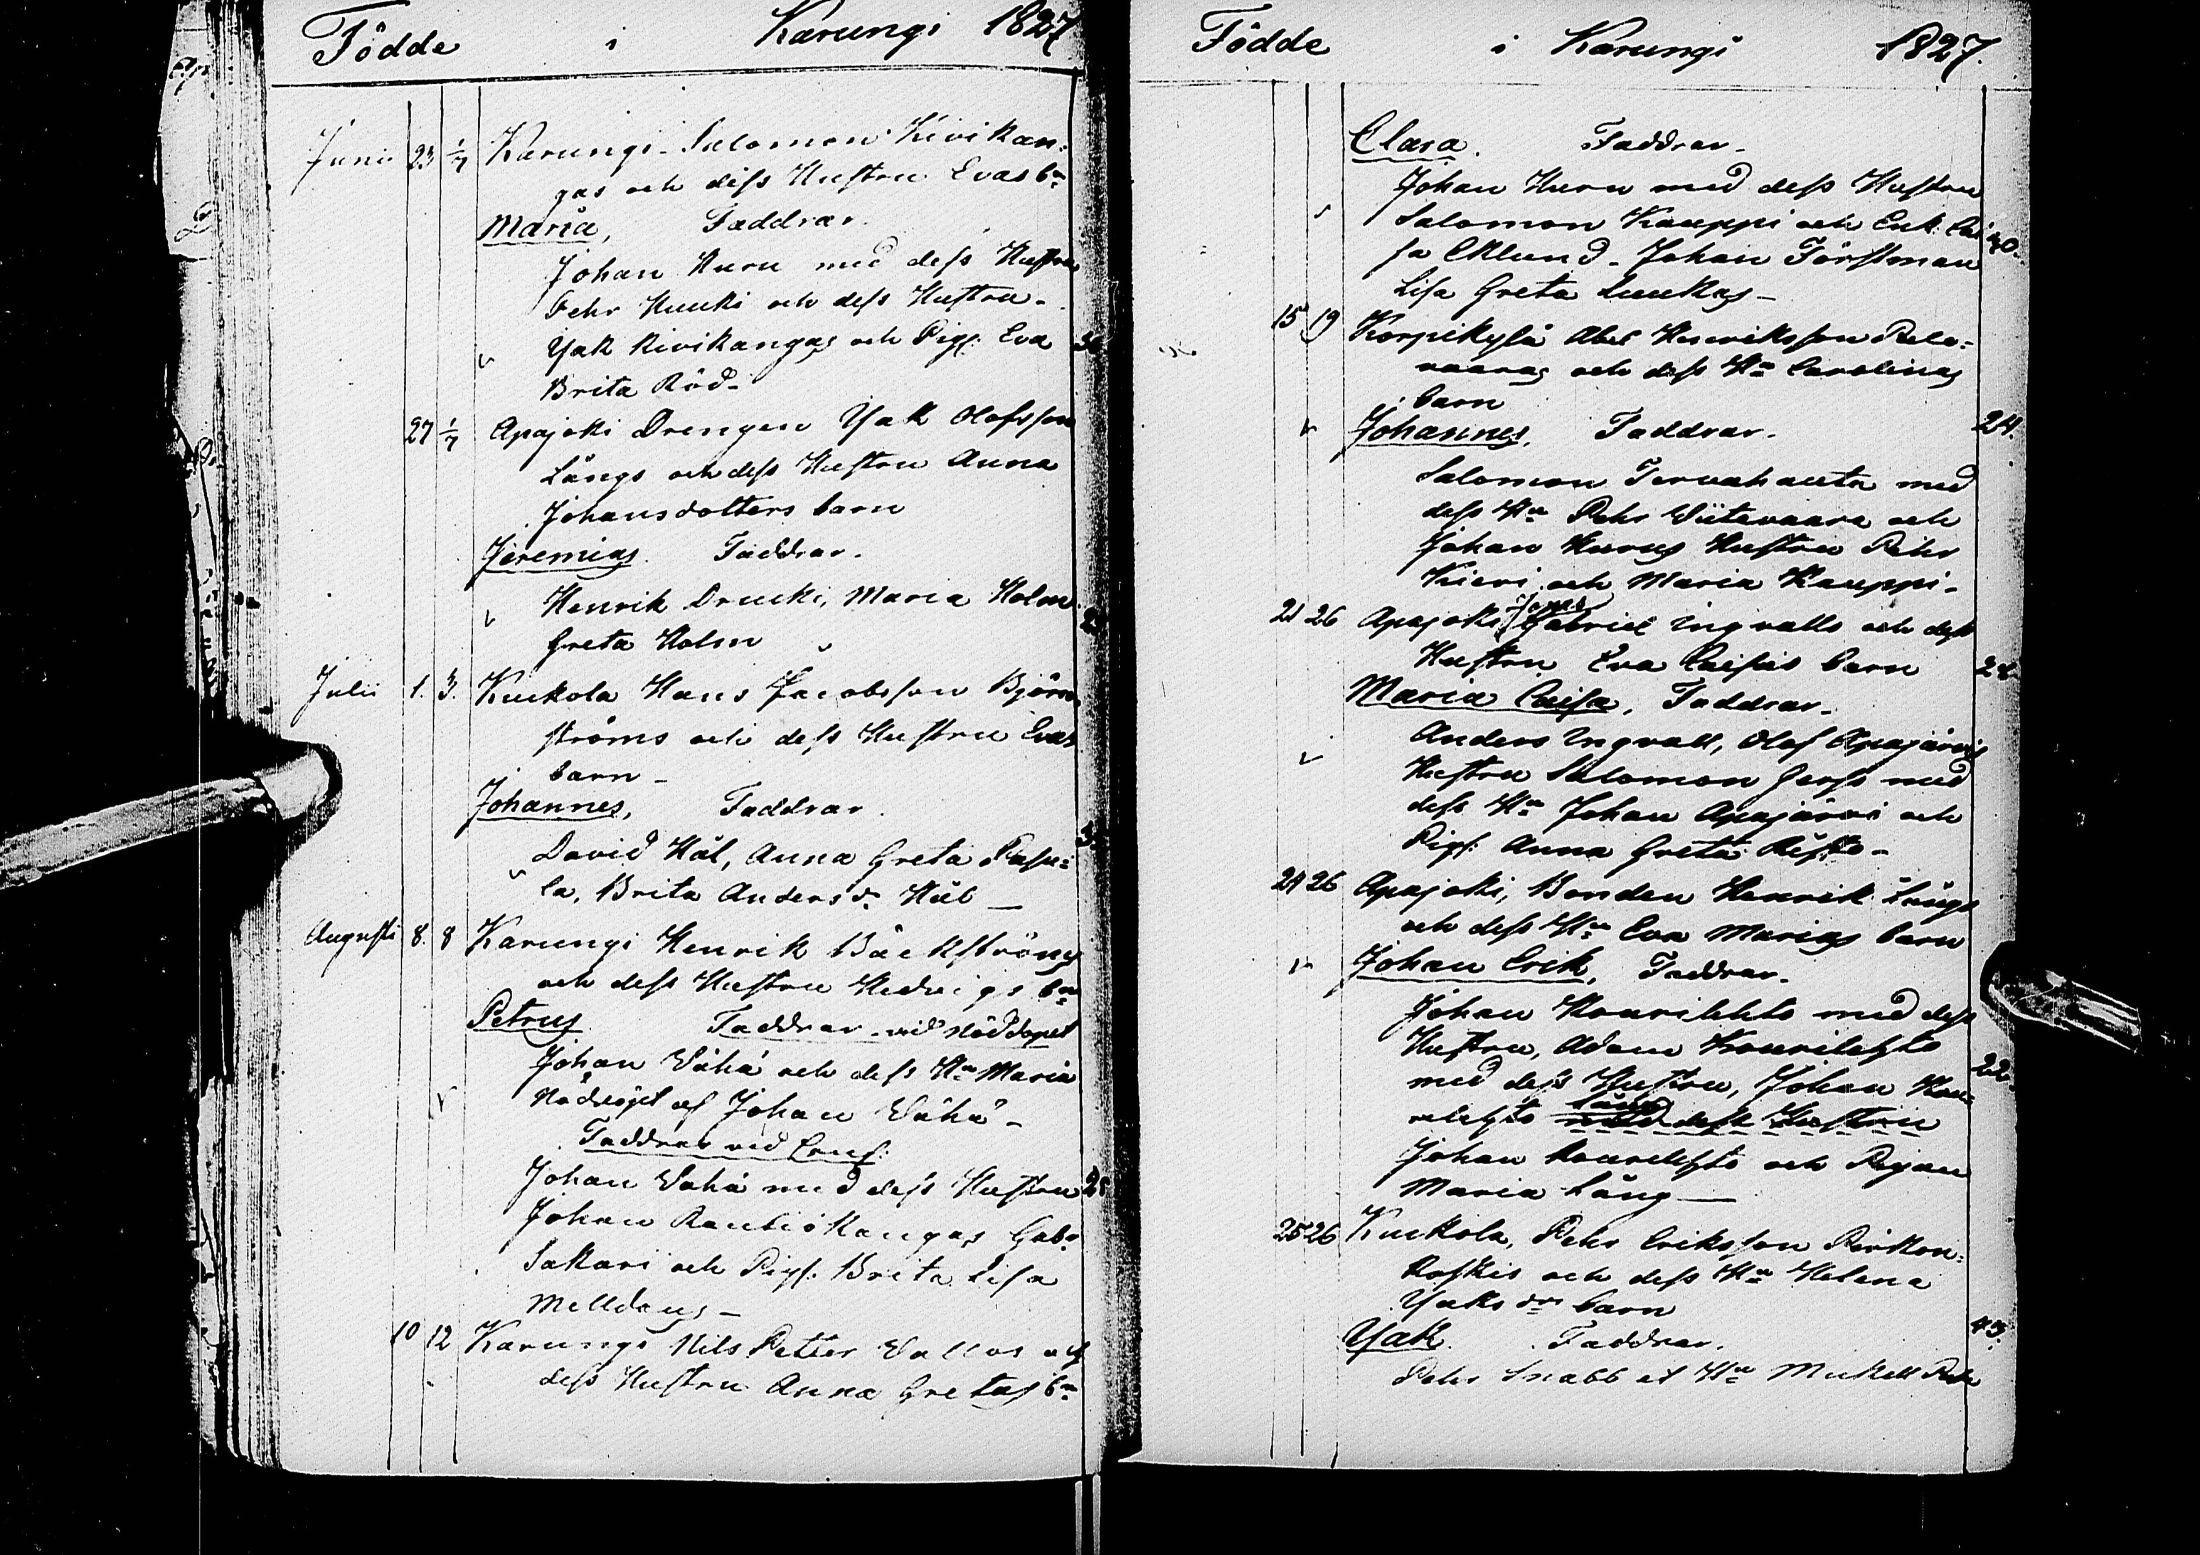 Födde i Karungi 1827
Junii 23 1/7 Karungi Salomon Kivikan-
gas och dess Hustru Evas bn
Maria, Faddrar.
Johan Huru med dess Hustru
Pehr Huuki och dess Hustru
Isak Kivikangas och Pig: Eva
Brita Röd
27 1/7 Apajoki Drengen Isak Olofsson
Längs och dess Hustru Anna
Johansdotters barn
Jeremias. Faddrar.
Henrik Drucki, Maria Holm
Greta Holm
Julii 1. 3. Kuckola Hans Jacobsson Björn
ströms och dess Hustru Evas
barn
Johannes, Faddrar.
David Hål, Anna Greta
la, Brita Anders dr
Augusti 8. 8 Karungi Henrik Bäckströms
och dess Hustru Hedvigs bn
Petrus Faddrar vid Nöddopet
Johan Vähä och dess Hu Maria
Nöddöpt af Johan Vähä
Faddrar vid Conf:
Johan Vähä med dess Hustru
Johan Rautiokangas Gabr
Sakari och Pig: Brita Lisa
Melldaus
10 12 Karungi Nils Petter och
dess Hustru Anna Gretas bn
Födde i Karungi 1827.
Clara. Faddrar
Johan Huru med dess Hustru
Salomon Kauppi och Enk: Cai 40.
sa Eklund Johan Förstman
Lisa Greta Luukas
15 19 Korpikylä Abel Henriksson Pale-
vaaras och dess Hu Carolinas
barn
Johannes, Faddrar. 24.
Salomon Tervahauta med
dess Hu Pehr Viitavaara och
Johan Hurus Hustru Pehr
Kieri och Maria Kauppi
21 26 Apajoki Gabriel Ingvalls och dess
Hustru Eva Caisas barn 24.
Maria Caisa, Faddrar.
Anders Ingvall, Olof Apajärvis
Hustru Salomon med
dess Hu Johan Apajärvi och
Pig: Anna Greta
24 26 Apajoki, Bonden Henrik Längs
och dess Hu Eva Marias barn
Johan Erik, Faddrar.
Johan Kourilehto med dess
Hustru, Adam Kourilehto 22.
med dess Hustru, Johan Kou-
rilehto med dess Hustru
Johan Kourilehto och Pigan
Maria Läng
25 26 Kuckola, Pehr Eriksson Pirkon-
koskis och dess Hu Helena
Isaks drs barn
Isak. Faddrar. 43.
Pehr Snabb et Hu Mickell Pehr